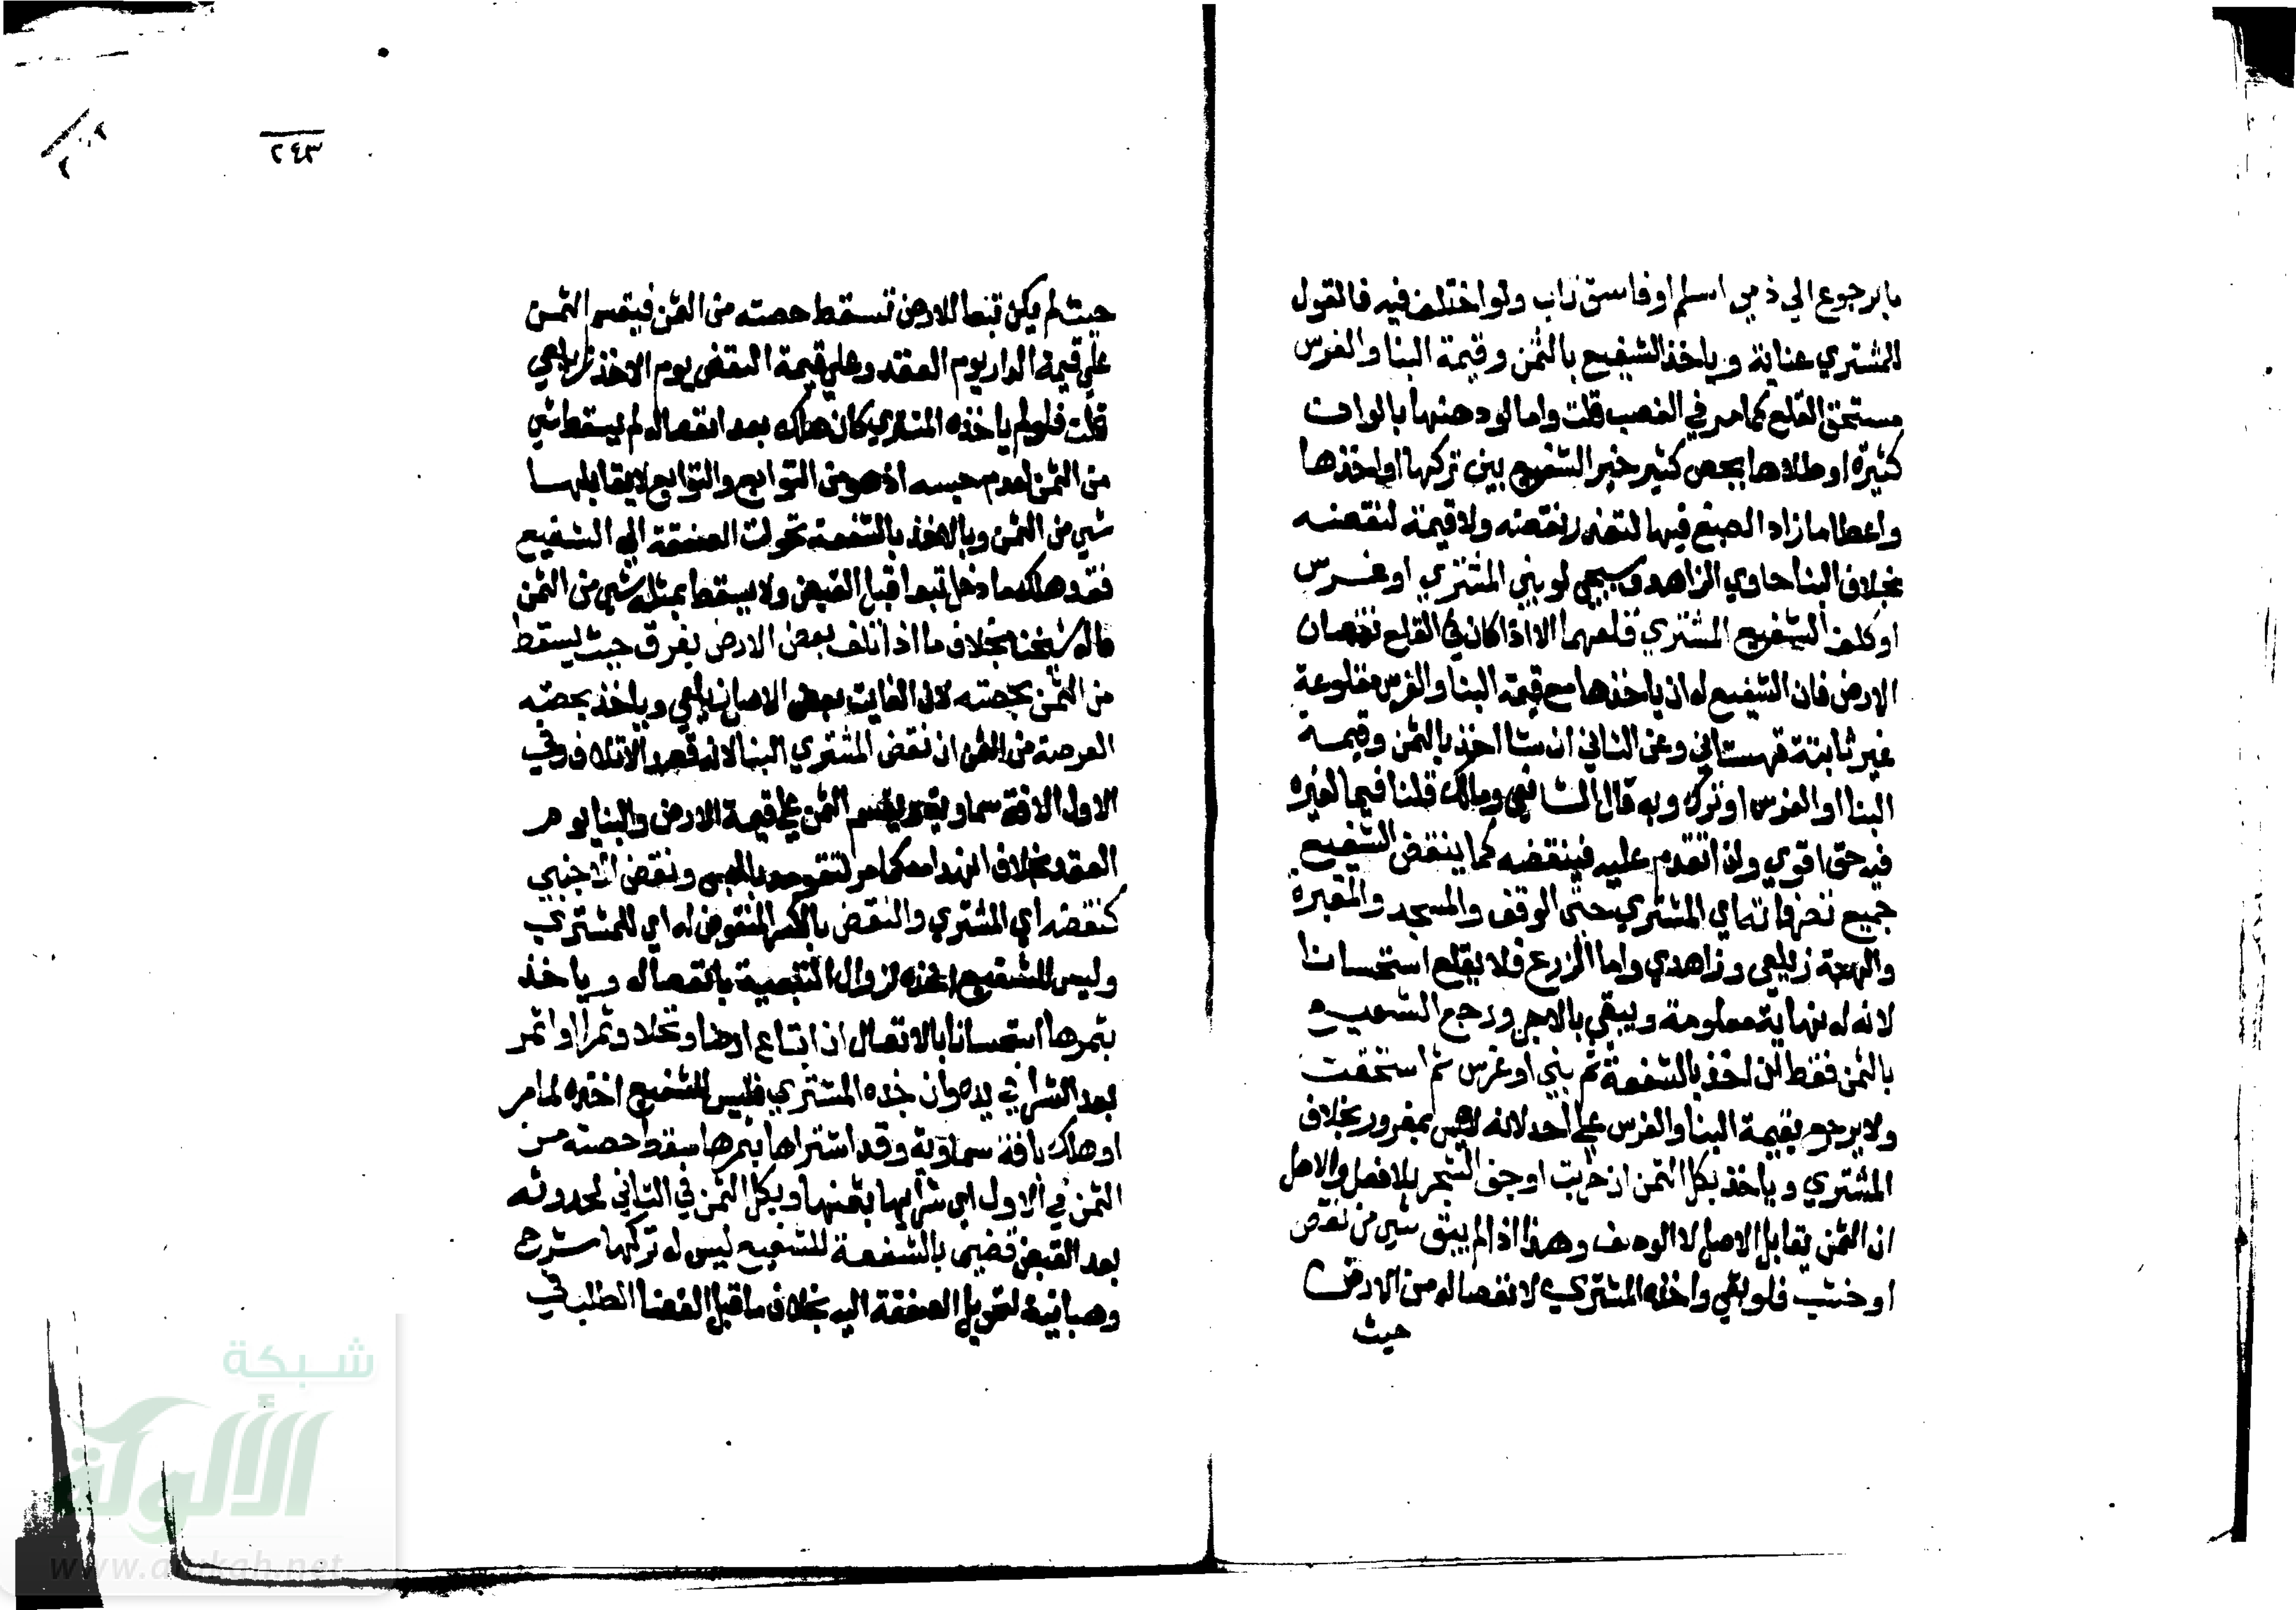 ما يرجوع الي ذمي اسلم او فاسق تاب ولو اختلف فيه فالقول
للمشتري عناية وياخذ الشفيع بالثمن وقيمة البنا والغرس
مستحق القلع كما مر في الغصب قلت واما لو دهنها بالوان
كثيرة او طلاها بجص كثير خير الشفيع بين تركها او اخذها
واعطا ما زاد الصبغ فيها لتعذر نقضه ولا قيمة لنقضه
بخلاف البنا حاوي الزاهدي وسيجي لو بني المشتري او غرس
او كلف الشفيع المشتري قلعهما الا اذا كان في القلع نقصان
الارض فان الشفيع له ان ياخذها مع قيمة البنا والغرس مقلوعة
غير ثابتة قهستاني وعن الثاني ان شا اخذ بالثمن وقيمة
البنا او الغرس او ترك وبه قال الشافعي ومالك قلنا فيما لغيره
فيه حق اقوي ولذا تقدم عليه فينقضه كما ينقض الشفيع
جميع تصرفاته اي المشتري حتي الوقف والمسجد والمقبرة
والهبة زيلعي وزاهدي واما الزرع فلا يقلع استحسانا
لانه له نهاية معلومة ويبقي بالاجر ورجع الشفيع
بالثمن فقط ان اخذ بالشفعة ثم بني او غرس ثم استحقت
ولا يرجع بقيمة البنا والغرس علي احد لانه ليس بمغرور بخلاف
المشتري وياخذ بكل الثمن ان خربت او جف الشجر بلا فعل والاصل
ان الثمن يقابل الاصل لا الوصف وهذا اذا لم يبق شي من نقض
او خشب فلو بقي واخذه المشتري لانفصاله من الارض
حيث
٢٤٣
حيث لم يكن تبعا للارض تسقط حصته من الثمن فيقسم الثمن
علي قيمة الدار يوم العقد وعلي قيمة النقض يوم الاخذ زيلعي
قلت فلو لم ياخذه المشتري كان هلك بعد انفصاله لم يسقط شي
من الثمن لعدم حبسه اذ هو من التوابع والتوابع لا يقابلها
شي من الثمن وبالاخذ بالشفعة تحولت الصفقة الي الشفيع
فقد هلك ما دخل تبعا قبل القبض ولا يسقط بمثله شي من الثمن
قاله شيخنا بخلاف ما اذا تلف بعض الارض بغرق حيث يسقط
من الثمن بحصته لان الفايت بعض الاصل زيلعي وياخذ بحصة
العرصة من الثمن ان نقض المشتري البنا لانه قصد الاتلاف وفي
الاول الافة سماوية ويقسم الثمن علي قيمة الارض والبنا يوم
العقد بخلاف انهدامه كما مر لتقومه بالحبس ونقض الاجنبي
كنقضه اي المشتري والنقض بالكسر المنقوض له اي للمشتري
وليس للشفيع اخذه لزوال التبعية بانفصاله وياخذ
بثمرها استحسانا بالاتصال ان ابتاع ارضا ونخلا وثمرا او اثمر
بعد الشرا في يده وان جذه المشتري فليس للشفيع اخذه لما مر
او هلك بافة سماوية وقد اشتراها بثمرها سقط حصته من
الثمن في الاول اي شرايها بثمنها وبكل الثمن في الثاني لحدوثه
بعد القبض قضي بالشفعة للشفيع ليس له تركها شرح
وهبانية لتحويل الصفقة اليه بخلاف ما قبل القضا الطلب في
شبكة
الألوكة
www.alukah.net